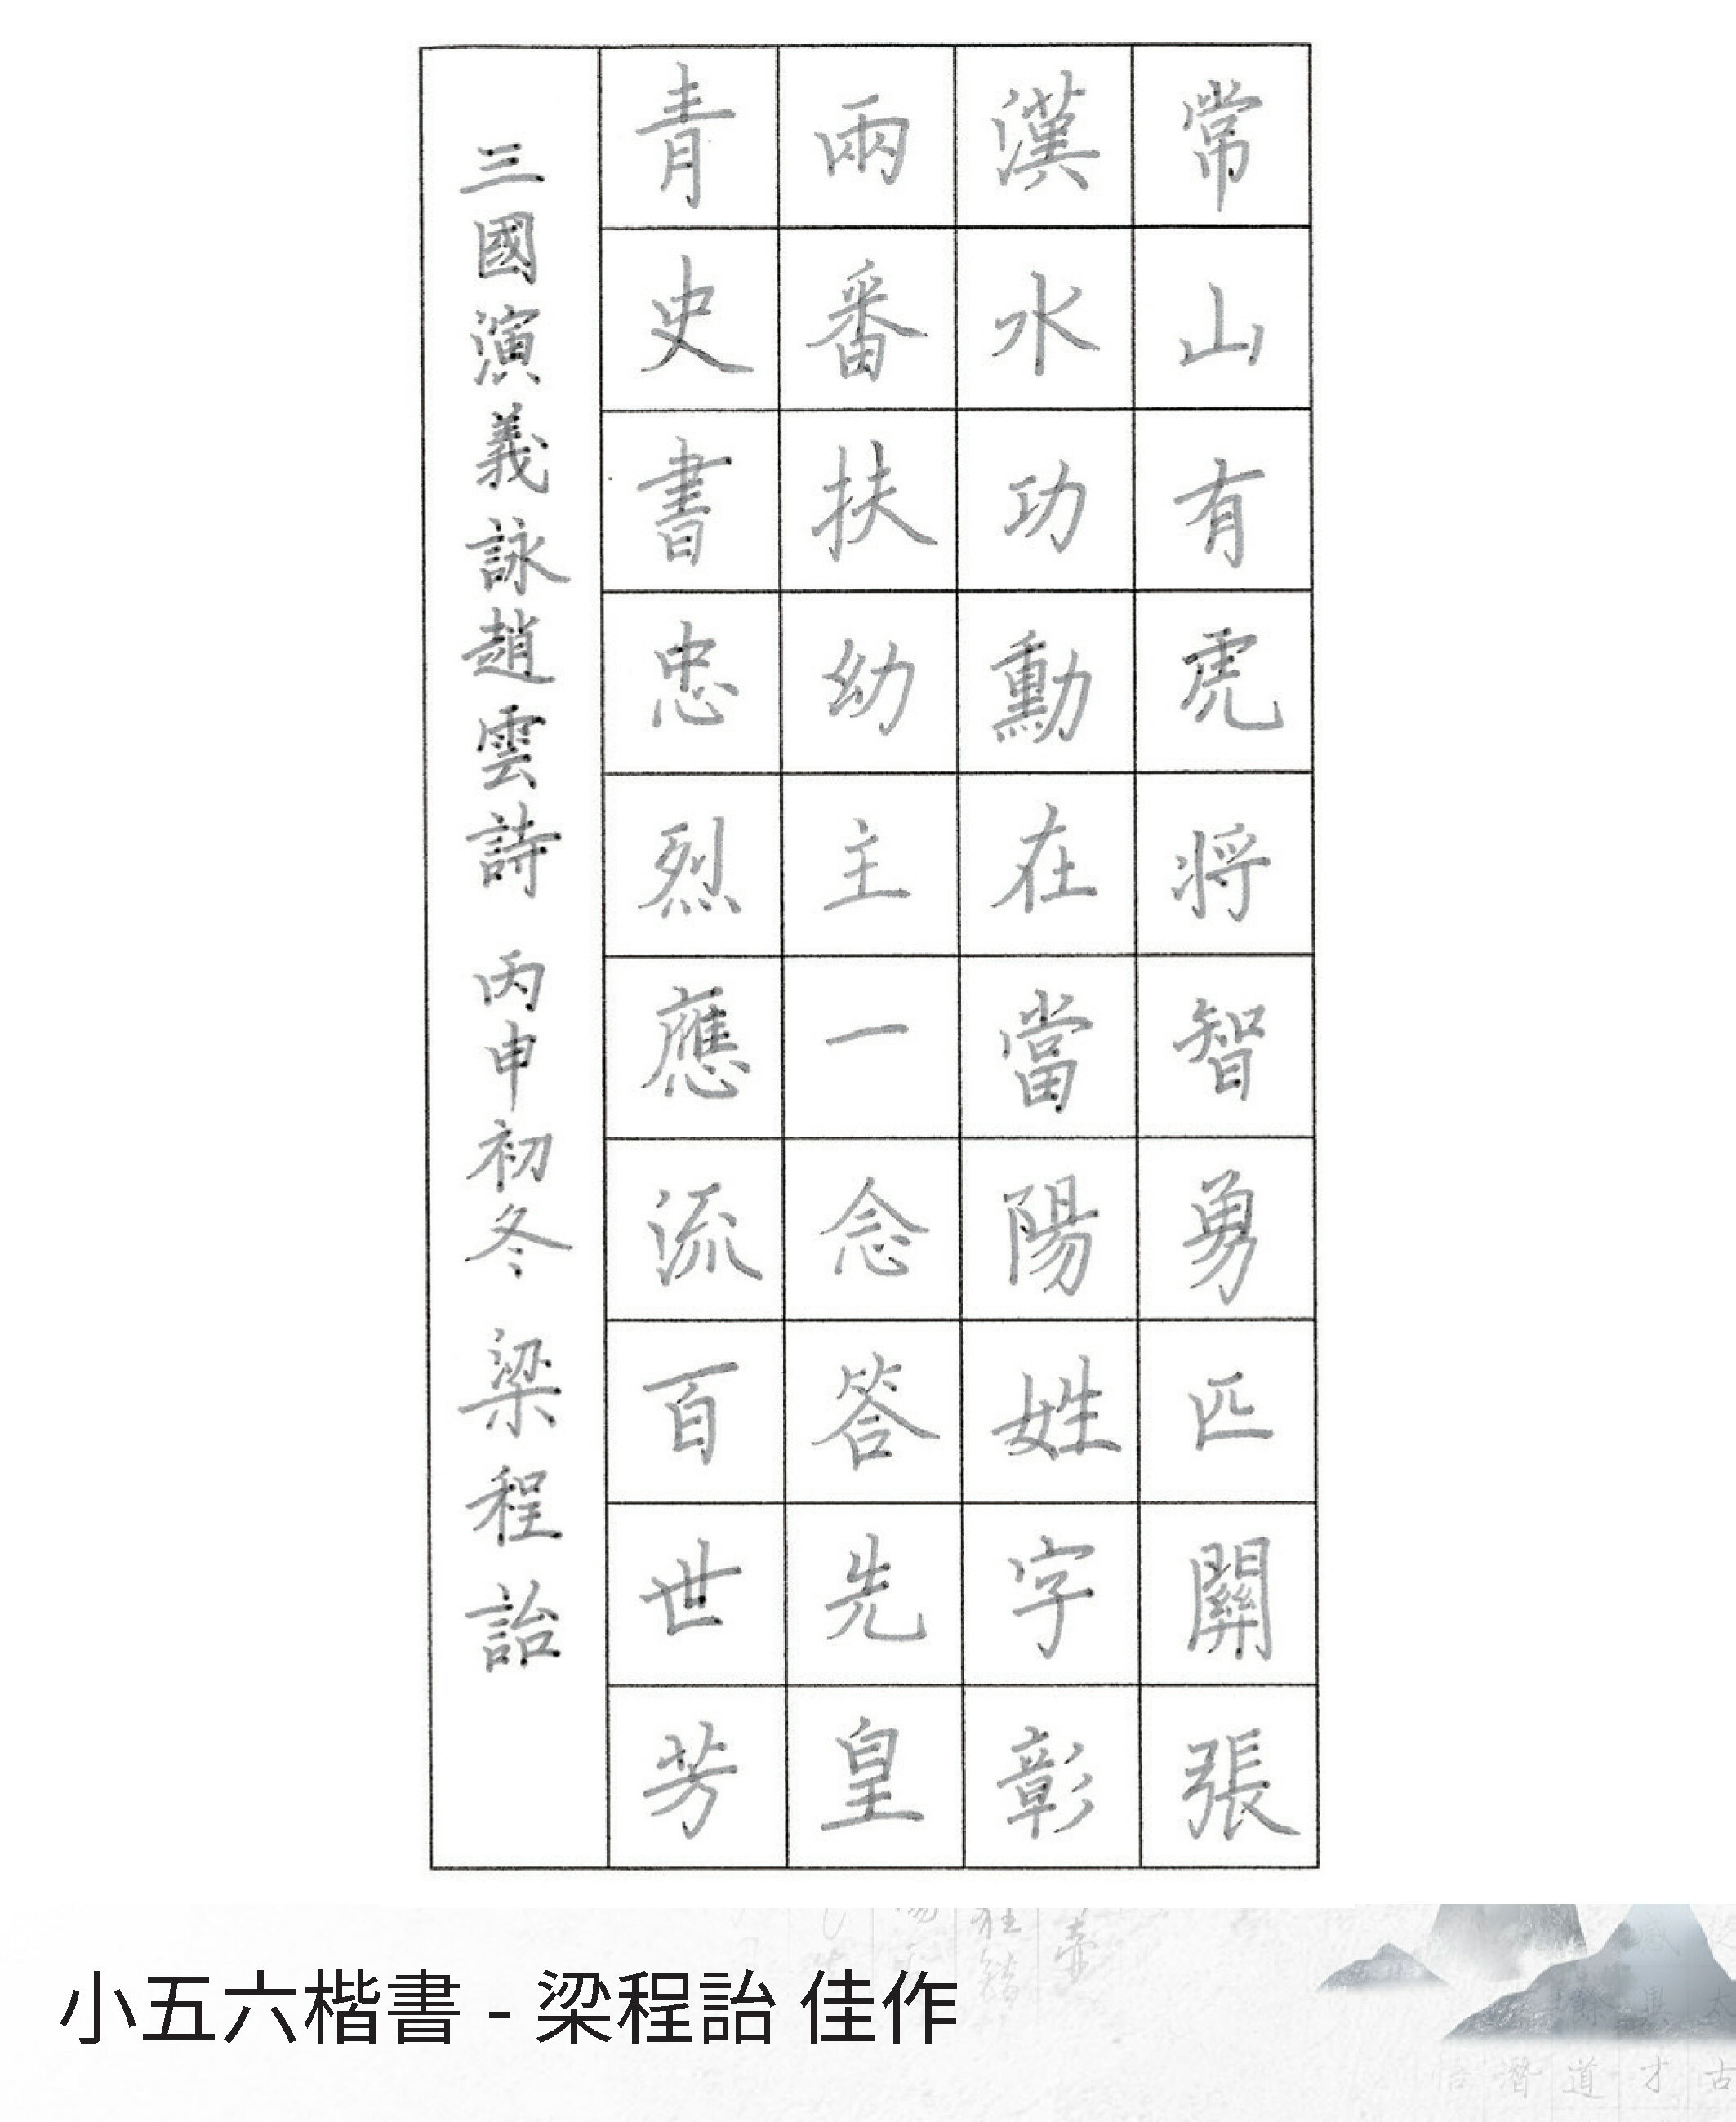 常山有虎將智勇匹關張
漢水功勳在當陽姓字彰
兩番扶幼主一念答先皇
青史書忠烈應流百世芳
三國演義詠趙雲詩 丙申初冬 梁程詒
小五六楷書 - 梁程詒 佳作